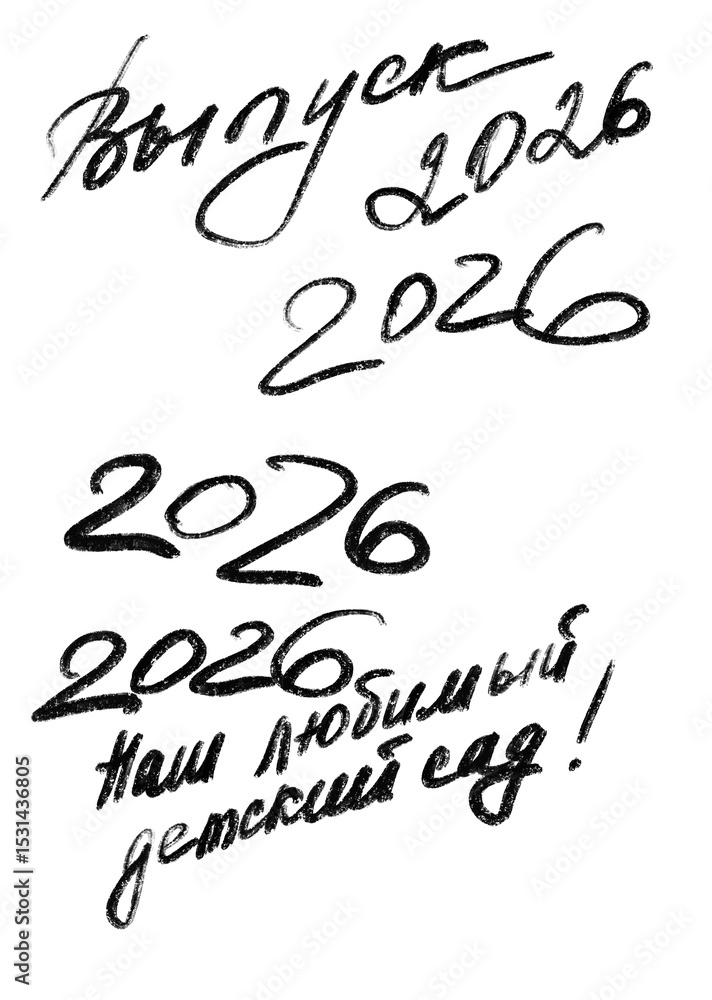 Выпуск
2026
2026
2026
2026
Наш любимый
детский сад!
Adobe Stock | #1531436805